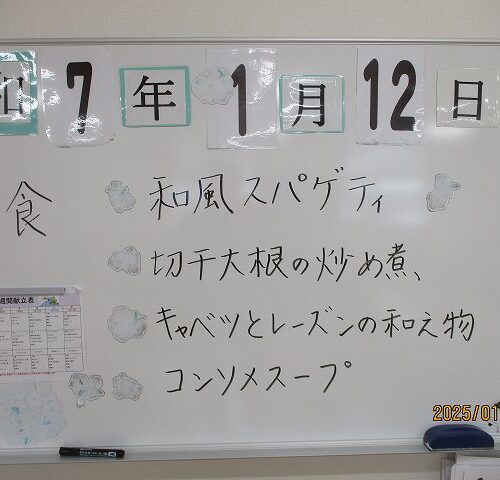 和7年1月12日
食
和風スパゲティ
切干大根の炒め煮、
キャベツとレーズンの和え物
コンソメスープ
週間献立表
2025/01